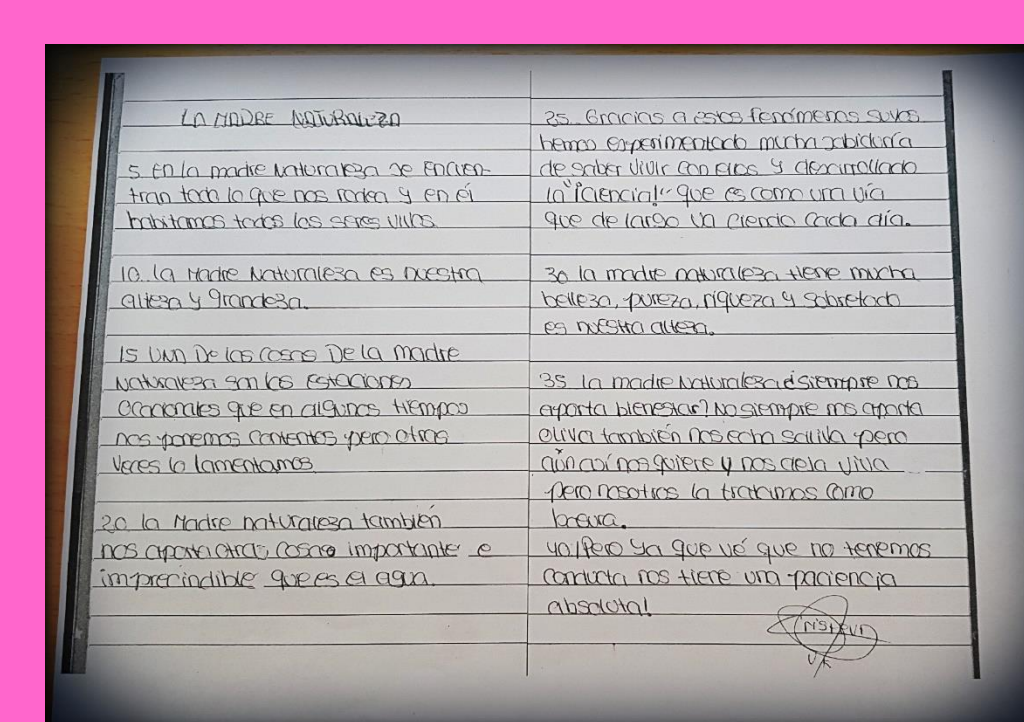 LA MADRE NATURALEZA
5. En la madre Naturaleza se encuen-
tran todo lo que nos rodea y en él
habitamos todos los seres vivos.
10. La Madre Naturaleza es nuestra
alteza y grandeza.
15 UNA De las cosas De la madre
Naturaleza son las Estaciones
ocacionales que en algunos tiempos
nos ponemos contentos pero otras
veces lo lamentamos
20. la Madre naturaleza también
nos aporta otras cosas importante e
imprecindible que es el agua.
25. Gracias a estos fenómenos suyos
hemos experimentado mucha sabiduría
de saber vivir con ellos y desarrollado
la "¡ciencia!" que es como una vía
que de largo va ciendo cada día.
30 la madre naturaleza tiene mucha
belleza, pureza, riqueza y sobretodo
es nuestra alteza.
35. la madre Naturaleza ¿siempre nos
aporta bienestar? No siempre nos aporta
oliva también nos echa saliva pero
aún así nos quiere y nos deja viva
pero nosotros la tratamos como
basura.
40 ¡Pero ya que vé que no tenemos
conducta nos tiene una paciencia
absoluta!